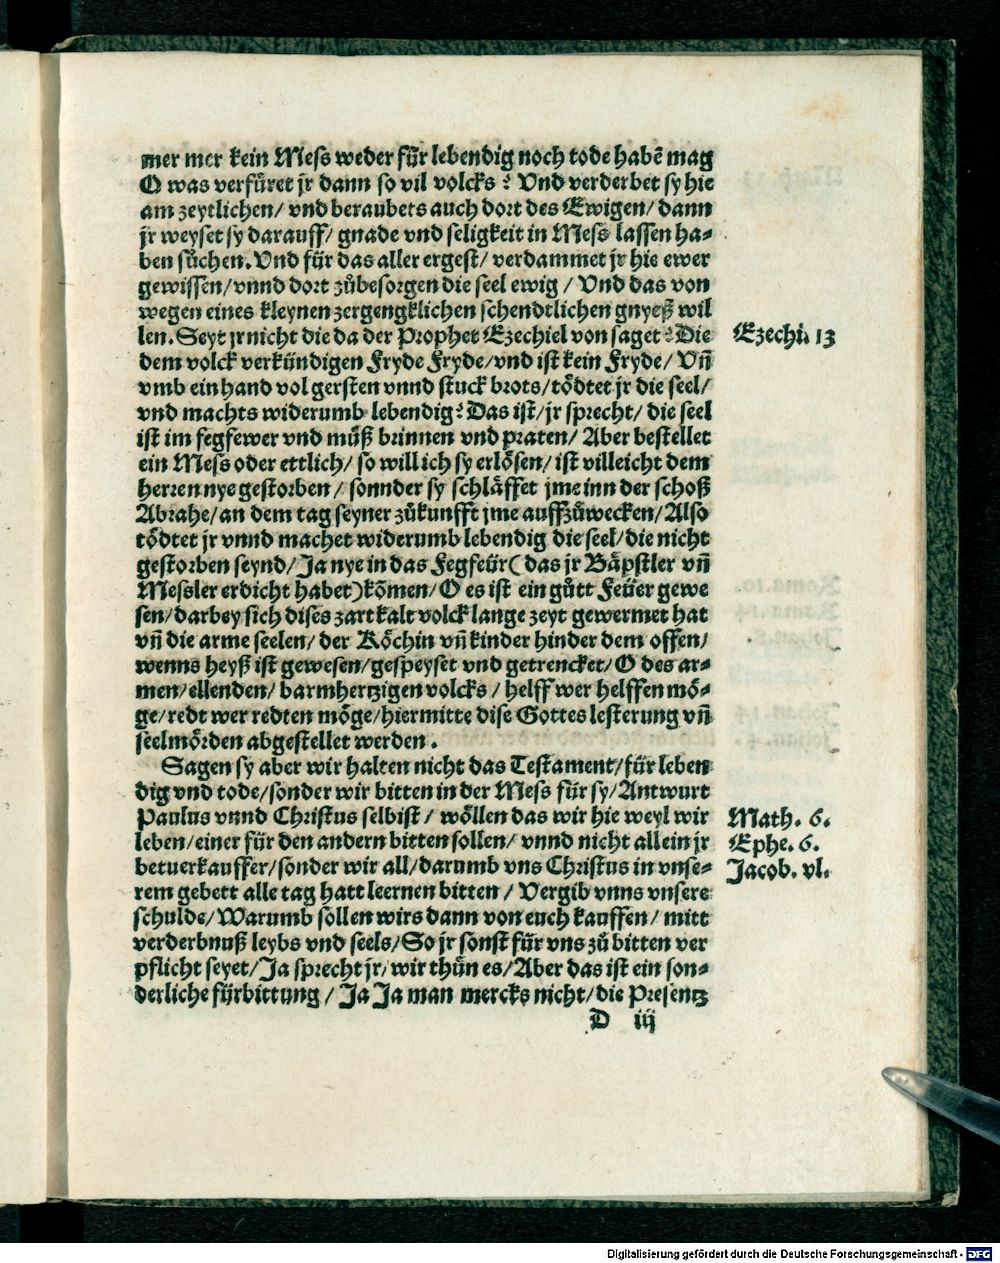 mer mer kein Mess weder für lebendig noch tode habē mag
O was verfüret jr dann so vil volcks? Vnd verderbet sy hie
am zeytlichen/ vnd beraubets auch dort des Ewigen/ dann
jr weyset sy darauff/ gnade vnd seligkeit in Mess lassen ha-
ben sůchen. Vnd für das aller ergest/ verdammet jr hie ewer
gewissen/ vnnd dort zůbesorgen die seel ewig / Vnd das von
wegen eines kleynen zergengklichen schendtlichen gnyeß wil
len. Seyt jr nicht die da der Prophet Ezechiel von saget? Die
dem volck verkündigen Fryde Fryde/ vnd ist kein Fryde/ Vñ
vmb ein hand vol gersten vnnd stuck brots/ tödtet jr die seel/
vnd machts widerumb lebendig? Das ist/ jr sprecht/ die seel
ist im fegfewer vnd můß brinnen vnd praten/ Aber bestellet
ein Mess oder ettlich/ so will ich sy erlösen/ ist villeicht dem
herren nye gestorben / sonnder sy schläffet jme inn der schoß
Abrahe/ an dem tag seyner zůkunfft jme auffzůwecken/ Also
tödtet jr vnnd machet widerumb lebendig die seel/ die nicht
gestorben seynd/ Ja nye in das Fegfeür( das jr Bäpstler vñ
Messler erdicht habet) kōmen/ O es ist ein gůtt Feüer gewe
sen/ darbey sich dises zart kalt volck lange zeyt gewermet hat
vñ die arme seelen/ der Köchin vñ kinder hinder dem offen/
wenns heyß ist gewesen/ gespeyset vnd getrencket/ O des ar-
men/ ellenden/ barmhertzigen volcks / helff wer helffen mö-
ge/ redt wer redten möge/ hiermitte dise Gottes lesterung vñ
seelmörden abgestellet werden.
Sagen sy aber wir halten nicht das Testament/ für leben
dig vnd tode/ sonder wir bitten in der Mess für sy/ Antwurt
Paulus vnnd Christus selbist / wöllen das wir hie weyl wir
leben/ einer für den andern bitten sollen/ vnnd nicht allein jr
betuerkauffer/ sonder wir all/ darumb vns Christus in vnse-
rem gebett alle tag hatt leernen bitten / Vergib vnns vnsere
schulde/ Warumb sollen wirs dann von euch kauffen/ mitt
verderbnuß leybs vnd seels/ So jr sonst für vns zů bitten ver
pflicht seyet/ Ja sprecht jr/ wir thůn es/ Aber das ist ein son-
derliche fürbittung / Ja Ja man mercks nicht/ die Presentz
D iij
Ezechi. 13
Math. 6.
Ephe. 6.
Jacob. vl.
Digitalisierung gefördert durch die Deutsche Forschungsgemeinschaft - DFG